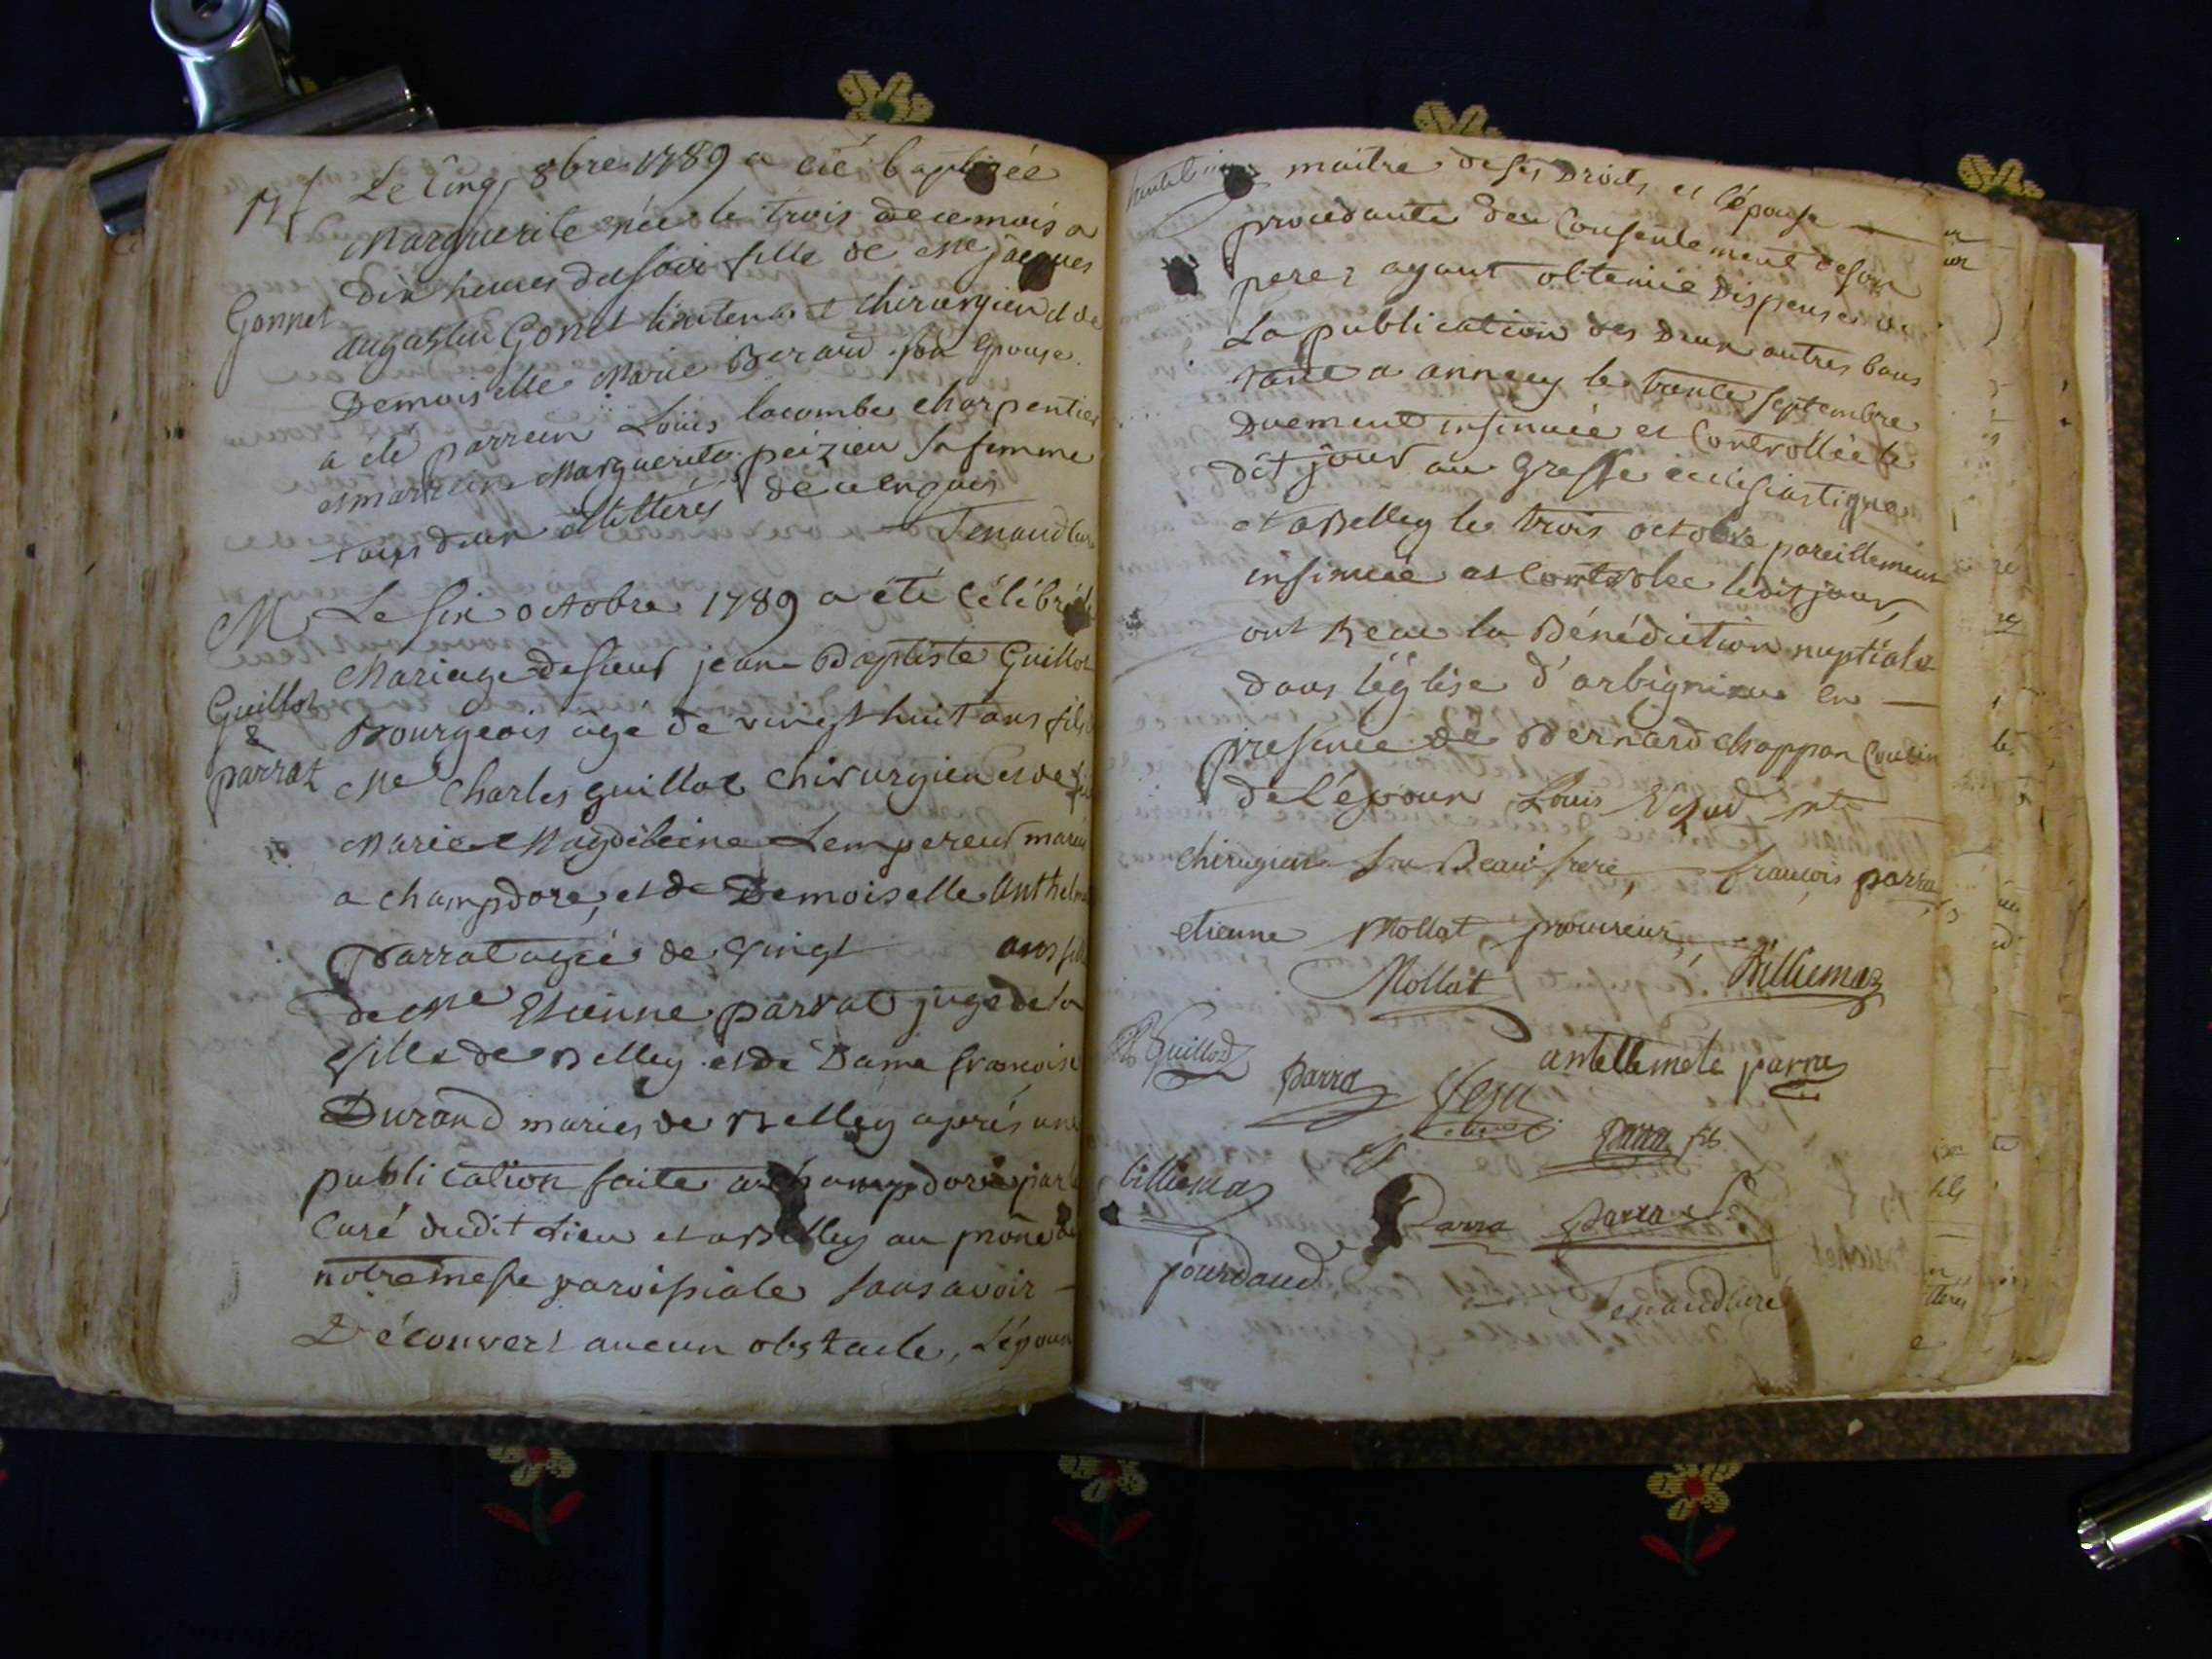 Le cinq 8bre 1789 a été baptisée
Marguerite née le trois de ce mois a
dix heures du soir fille de Me jacques
Gonnet
augustin Gonet lieutenant chirurgien et de
Demoiselle Marie Berard son Epouse.
a été parrein Louis lacombe charpentier
et marreine Marguerite peizieu sa femme
tous deux illitterés de ce enquis
M Le six octobre 1789 a été célébré le
Mariage de sieur jean Baptiste Guillot
Guillot
&
parrat
Bourgeois âgé de vingt huit ans fils
Me Charles guillot chirurgien et de
Marie Magdeleine Lempereur mariés
a champdore, et de Demoiselle Anthel
Parrat agée de vingt ans
de Me Etienne parrat juge de la
ville de Belley et de Dame françoise
Durand mariés de Belley aprés une
publication faite a champdore par
Curé dudit Lieu et a Belley au prône de
notre messe paroissiale sans avoir
Découvert aucun obstacle, L'époux
maitre de ses Droits et l'épouse
procedante du Consentement de son
pere, ayant obtenue Dispense de
La publication des Deux autres bans
a annecy le trente septembre
Duement insinuée et Controllée le
dit jour au Greffe ecclésiastique
et a Belley le trois octobre pareillement
insinuée et Controlee ledit jour,
ont Receu la Bénédiction nuptiale
dans l'église d'arbignieu en
presence de Bernard chappon Cousin
de L'époux Louis
chirugien son Beau frere, françois parra
etienne Mollat procureur,
Mollat Billiemaz
Guillot antellmete parra
Parra
Parra fils
billiemaz
Parra Parra
jourdand